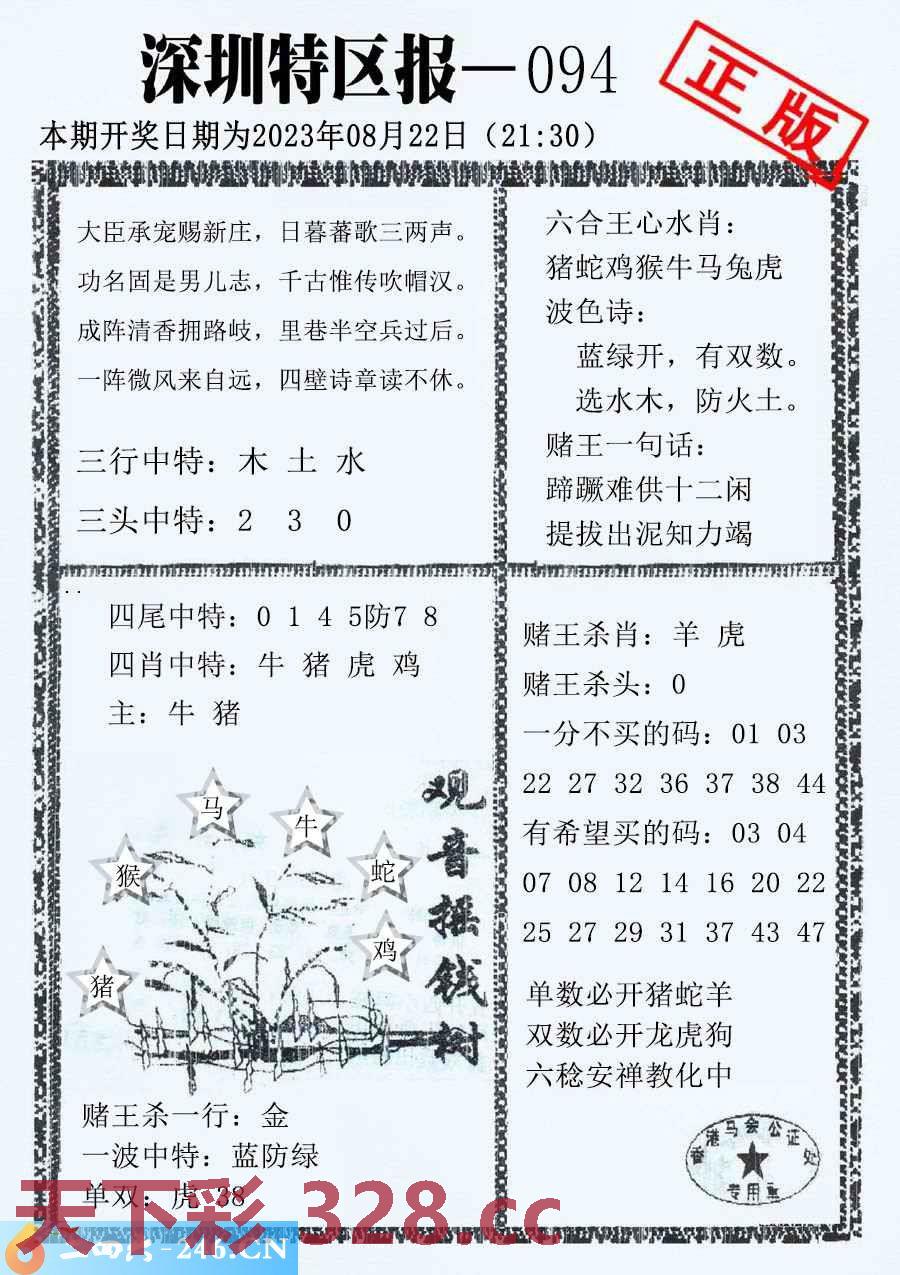 深圳特区报—094
正版
本期开奖日期为2023年08月22日（21:30）
大臣承宠赐新庄，日暮蕃歌三两声。
功名固是男儿志，千古惟传吹帽汉。
成阵清香拥路岐，里巷半空兵过后。
一阵微风来自远，四壁诗章读不休。
三行中特：木 土 水
三头中特：2 3 0
六合王心水肖：
猪蛇鸡猴牛马兔虎
波色诗：
蓝绿开，有双数。
选水木，防火土。
赌王一句话：
蹄蹶难供十二闲
提拔出泥知力竭
四尾中特：0 1 4 5防7 8
四肖中特：牛 猪 虎 鸡
主：牛 猪
马
牛
猴
蛇
鸡
猪
观音摇钱树
赌王杀一行：金
一波中特：蓝防绿
单双：虎 38
赌王杀肖：羊 虎
赌王杀头：0
一分不买的码：01 03
22 27 32 36 37 38 44
有希望买的码：03 04
07 08 12 14 16 20 22
25 27 29 31 37 43 47
单数必开猪蛇羊
双数必开龙虎狗
六稔安禅教化中
香港马会公证处
专用章
天下彩 328.cc
-246.CN